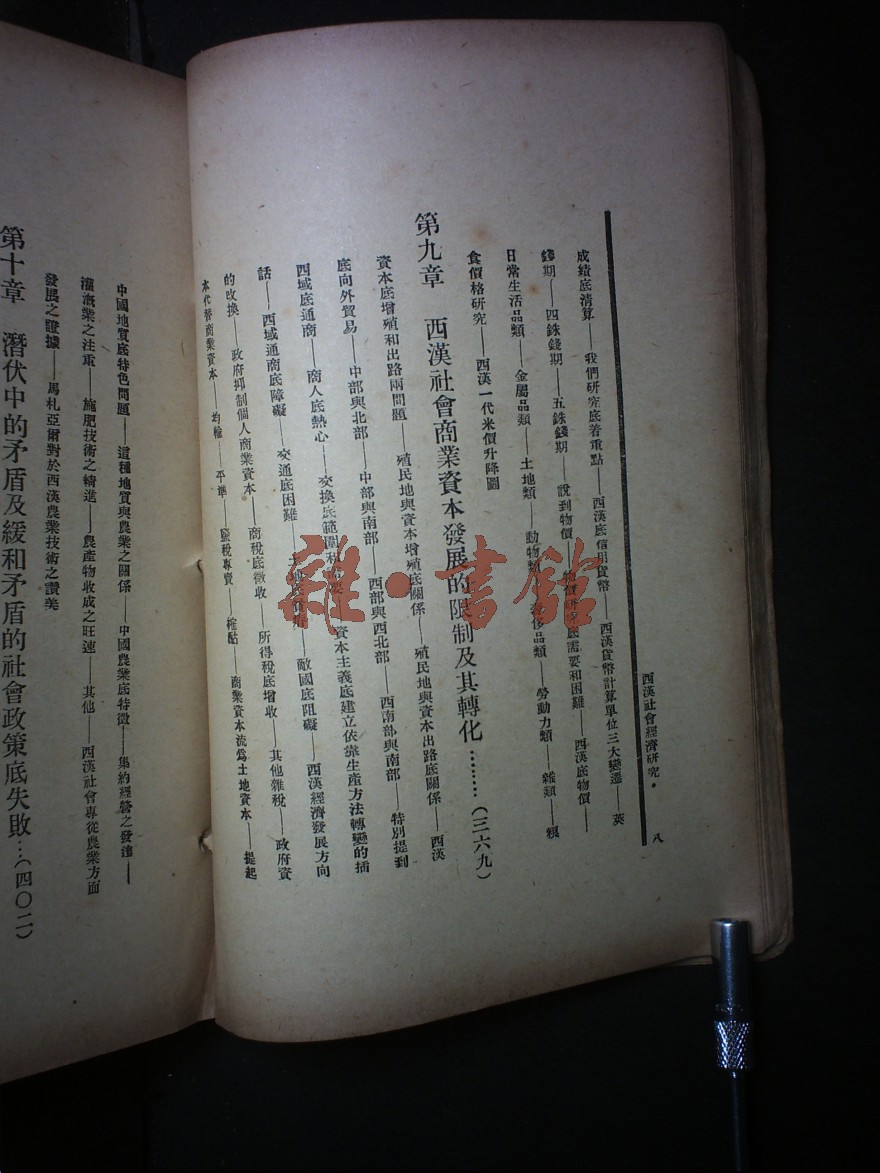 西漢社會經濟研究・
八
成績底清算——我們研究底着重點——西漢底信用貨幣——西漢貨幣計算單位三大變遷——莢
錢期——四銖錢期——五銖錢期——說到物價——物價研究底需要和困難——西漢底物價——
日常生活品類——金屬品類——土地類——動物類——奢侈品類——勞動力類——雜類——糧
食價格研究——西漢一代米價升降圖
第九章 西漢社會商業資本發展的限制及其轉化………(三六九)
資本底增殖和出路兩問題——殖民地與資本增殖底關係——殖民地與資本出路底關係——西漢
底向外貿易——中部與北部——中部與南部——西部與西北部——西南部與南部——特別提到
西域底通商——商人底熱心——交換底範圍和——資本主義底建立依靠生產方法轉變的插
話——西域通商底障礙——交通底困難——敵國底阻礙——西漢經濟發展方向
的改換——政府抑制個人商業資本——商稅底徵收——所得稅底增收——其他雜稅——政府資
本代替商業資本——均輸——平準——鹽稅專賣——榷酤——商業資本流爲土地資本——提起
中國地質底特色問題——這種地質與農業之關係——中國農業底特徵——集約經營之發達——
灌漑業之注重——施肥技術之精進——農產物收成之旺速——其他——西漢社會專從農業方面
發展之證據——馬札亞爾對於西漢農業技術之讚美
第十章 潛伏中的矛盾及緩和矛盾的社會政策底失敗…(四〇二)
雜・書館